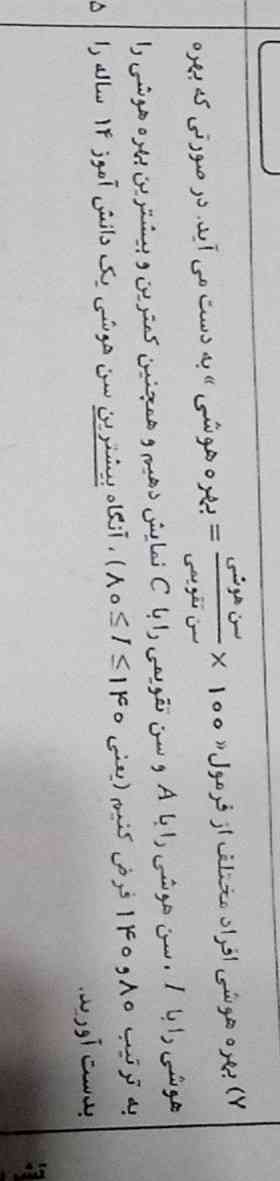 ۷) بهره هوشی افراد مختلف از فرمول «۱۰۰ × سن هوشی / سن تقویمی = بهره هوشی» به دست می آید. در صورتی که بهره
هوشی را با I، سن هوشی را با A و سن تقویمی را با C نمایش دهیم و همچنین کمترین و بیشترین بهره هوشی را
به ترتیب ۸۰ و ۱۴۰ فرض کنیم (یعنی ۸۰ ≤ I ≤ ۱۴۰)، آنگاه بیشترین سن هوشی یک دانش آموز ۱۴ ساله را
بدست آورید.
۵